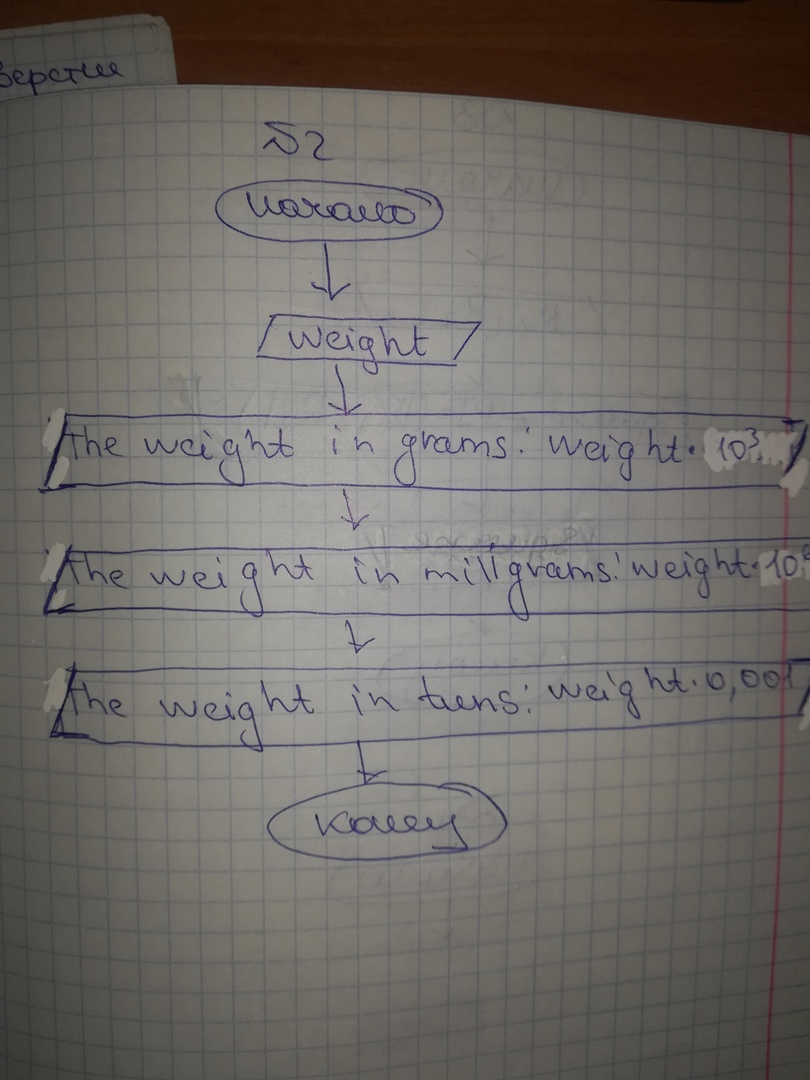 верстии
№2
начало
weight
The weight in grams: weight · 10³
The weight in millgrams: weight · 10⁶
The weight in tuns: weight · 0,001
конец